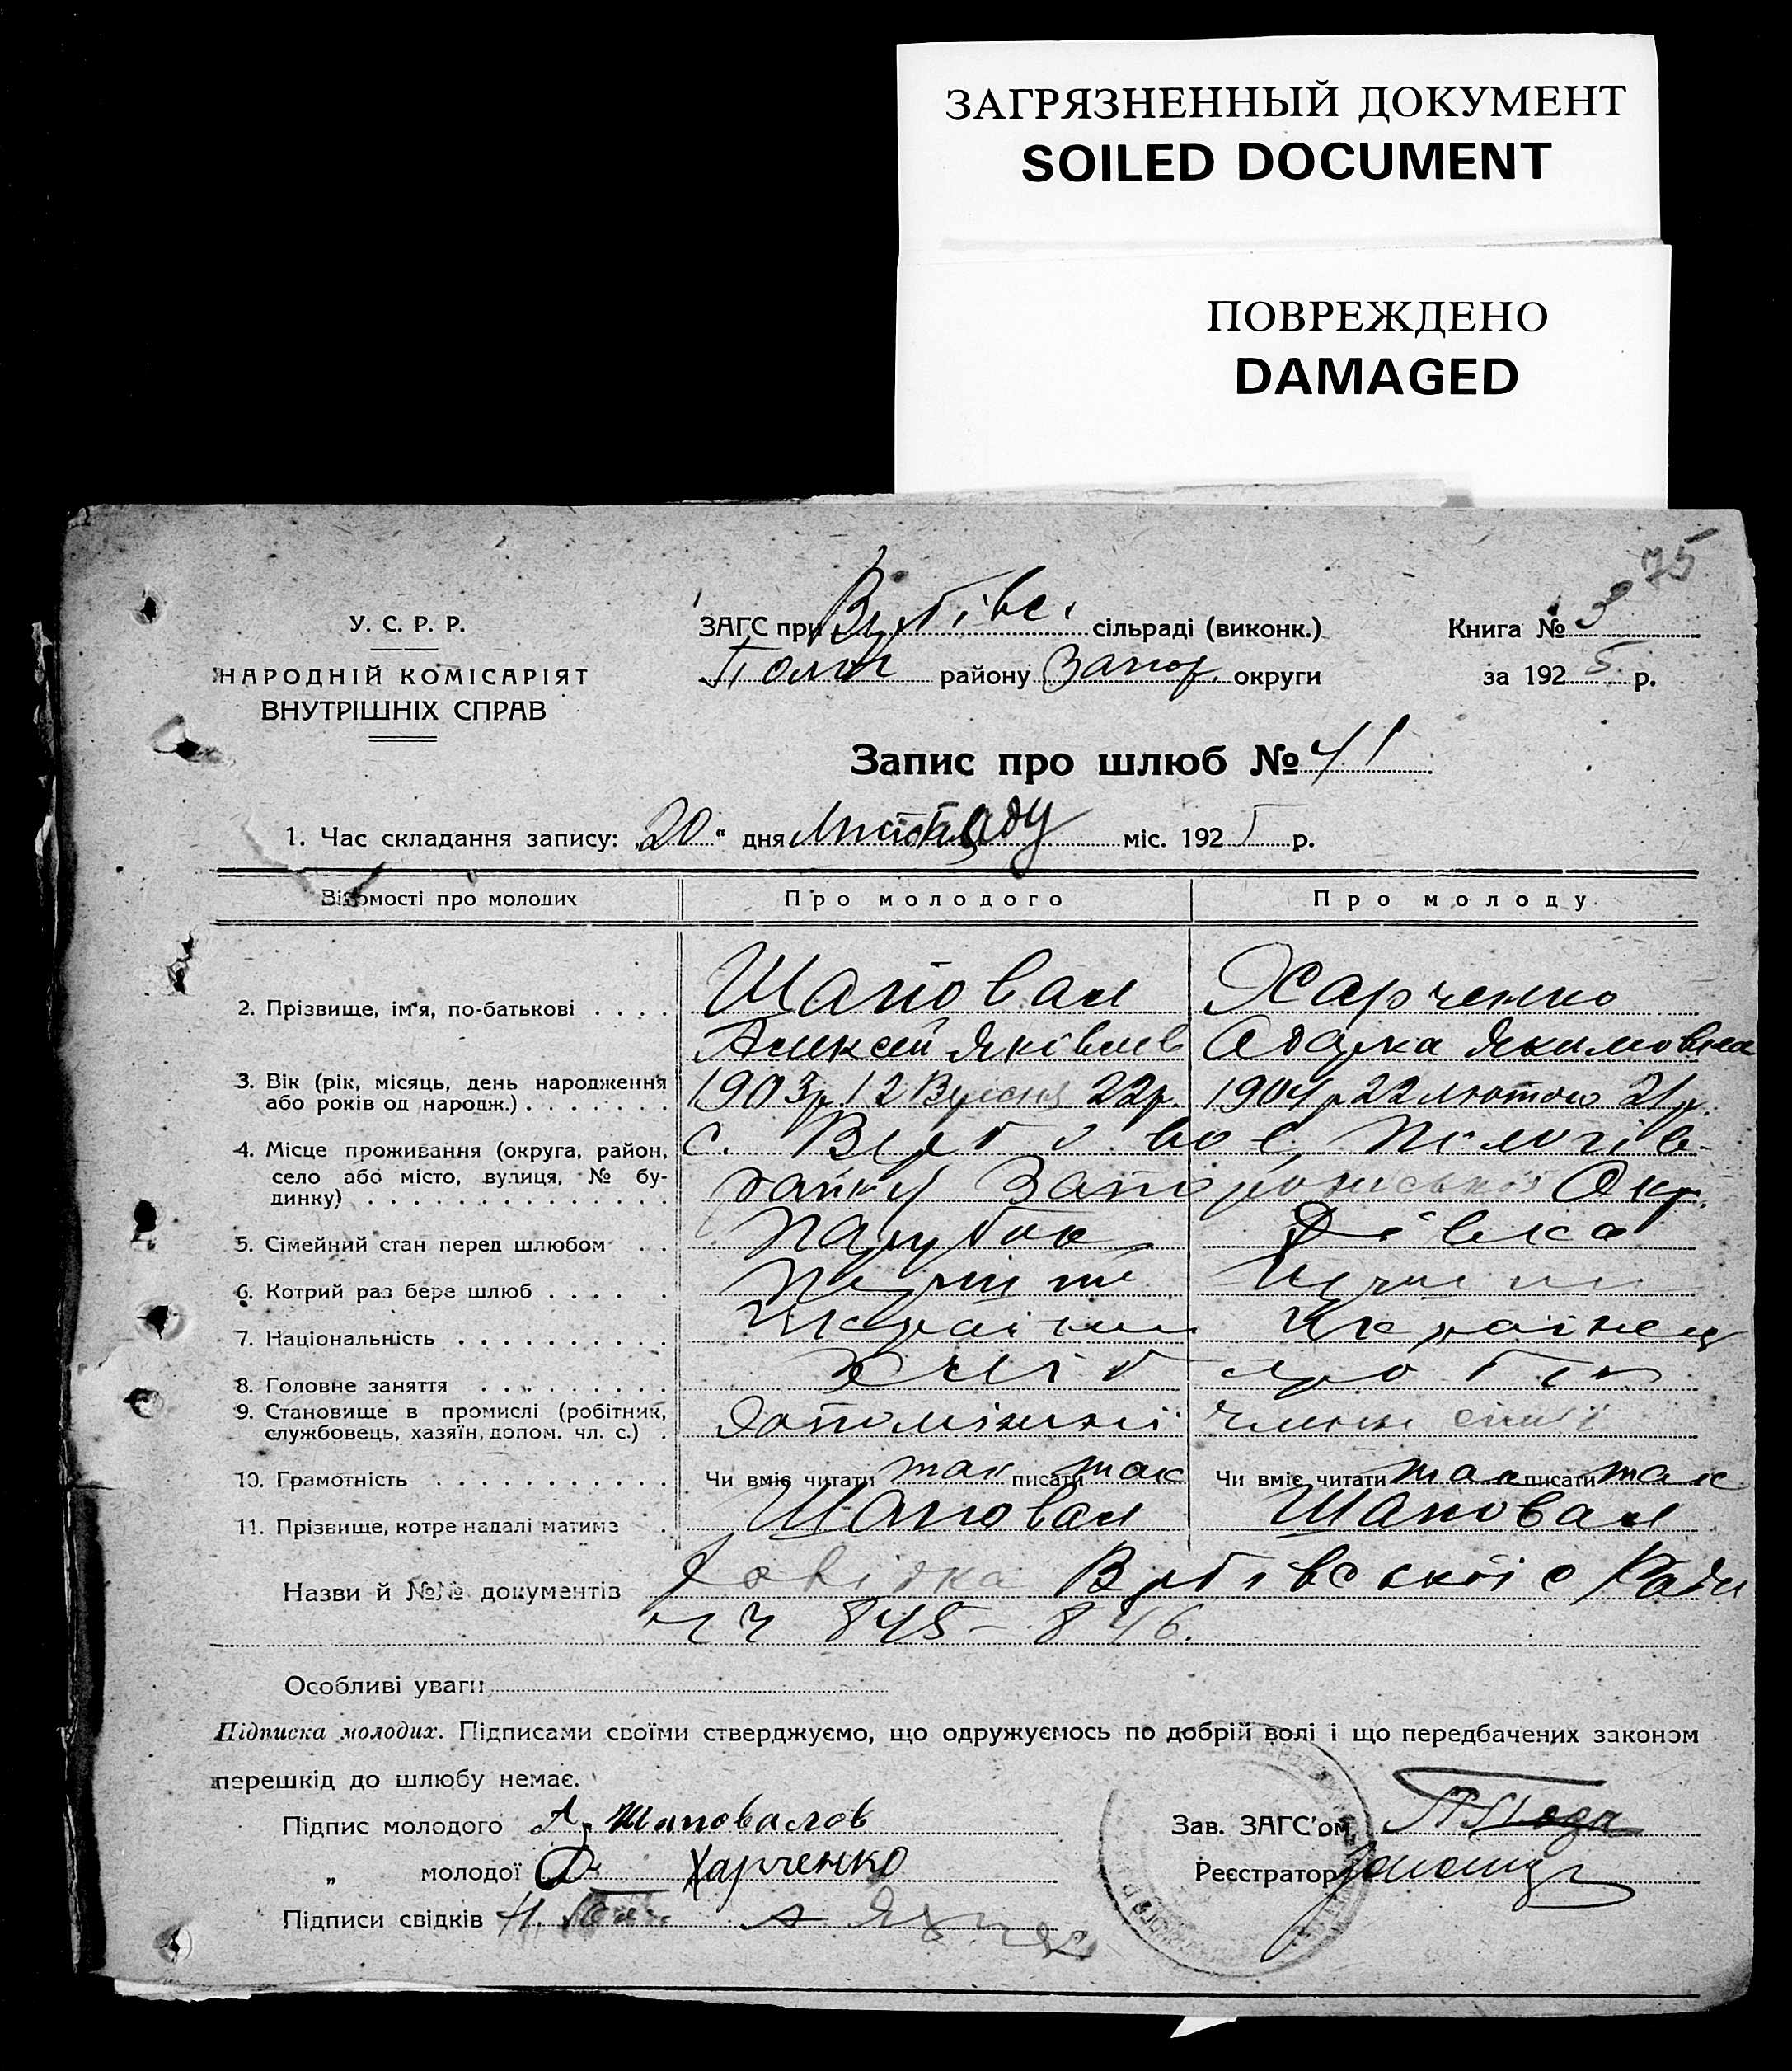 ЗАГРЯЗНЕННЫЙ ДОКУМЕНТ
SOILED DOCUMENT
ПОВРЕЖДЕНО
DAMAGED
75
У. С. Р. Р.
НАРОДНІЙ КОМІСАРІЯТ
ВНУТРІШНІХ СПРАВ
ЗАГС при Вербівсі сільраді (виконк.)
Полог району Запор. округи
Книга № 3
за 1925 р.
Запис про шлюб № 41
1. Час складання запису: „20“ дня Листопаду міс. 1925 р.
Відомості про молодих Про молодого Про молоду
2. Прізвище, ім'я, по-батькові Шаповал Харченко
Алексей Яківлев Явдоха Якимовна
3. Вік (рік, місяць, день народження або років од народж.) 1903р 12 Вересня 22р. 1904 р 22 лютого 21р.
4. Місце проживання (округа, район, село або місто, вулиця, № будинку) с. Вербовоє, Пологів-
району Запорожської Окр.
5. Сімейний стан перед шлюбом Парубок Дівка
6. Котрий раз бере шлюб Перший
7. Національність Українець
8. Головне заняття хліб ороб
9. Становище в промислі (робітник, службовець, хазяїн, допом. чл. с.) допоміжний член сім'ї
10. Грамотність Чи вміє читати так писати так Чи вміє читати так писати так
11. Прізвище, котре надалі матиме Шаповал Шаповал
Назви й №№ документів Довідка Вербівської с Ради
845 – 846.
Особливі уваги
Підписка молодих. Підписами своїми стверджуємо, що одружуємось по добрій волі і що передбачених законом
перешкід до шлюбу немає.
Підпис молодого А. Шаповалов
„ молодої Харченко
Підписи свідків
Зав. ЗАГС'ом
Реєстратор